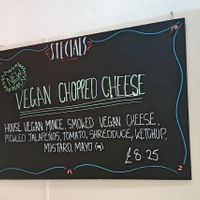 SPECIALS
VEGAN CHOPPED CHEESE
HOUSE VEGAN MINCE, SMOKED VEGAN CHEESE,
PICKLED JALAPEÑOS, TOMATO, SHREDDUCE, KETCHUP,
MUSTARD, MAYO
£8.25